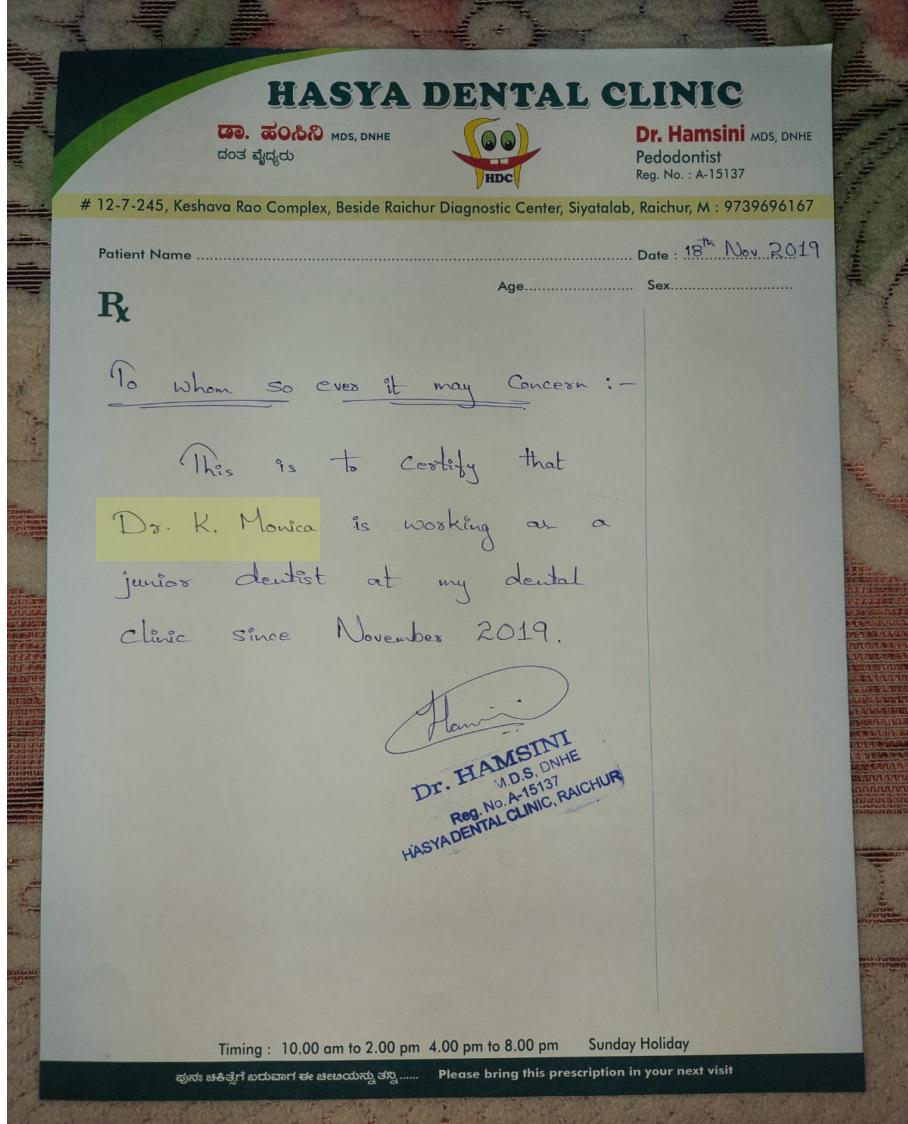 HASYA DENTAL CLINIC
ಡಾ. ಹಂಸಿನಿ MDS, DNHE
ದಂತ ವೈದ್ಯರು
HDC
Dr. Hamsini MDS, DNHE
Pedodontist
Reg. No. : A-15137
# 12-7-245, Keshava Rao Complex, Beside Raichur Diagnostic Center, Siyatalab, Raichur, M : 9739696167
Patient Name ........ Date : 18th Nov 2019
Age........ Sex........
Rx
To whom so ever it may Concern :-
This is to certify that
Dr. K. Monica is working as a
junior dentist at my dental
clinic since November 2019.
Hamsini
Dr. HAMSINI
M.D.S, DNHE
Reg. No. A-15137
HASYA DENTAL CLINIC, RAICHUR
Timing : 10.00 am to 2.00 pm 4.00 pm to 8.00 pm Sunday Holiday
ಪುನಃ ಚಿಕಿತ್ಸೆಗೆ ಬರುವಾಗ ಈ ಚೀಟಿಯನ್ನು ತನ್ನಿ...... Please bring this prescription in your next visit